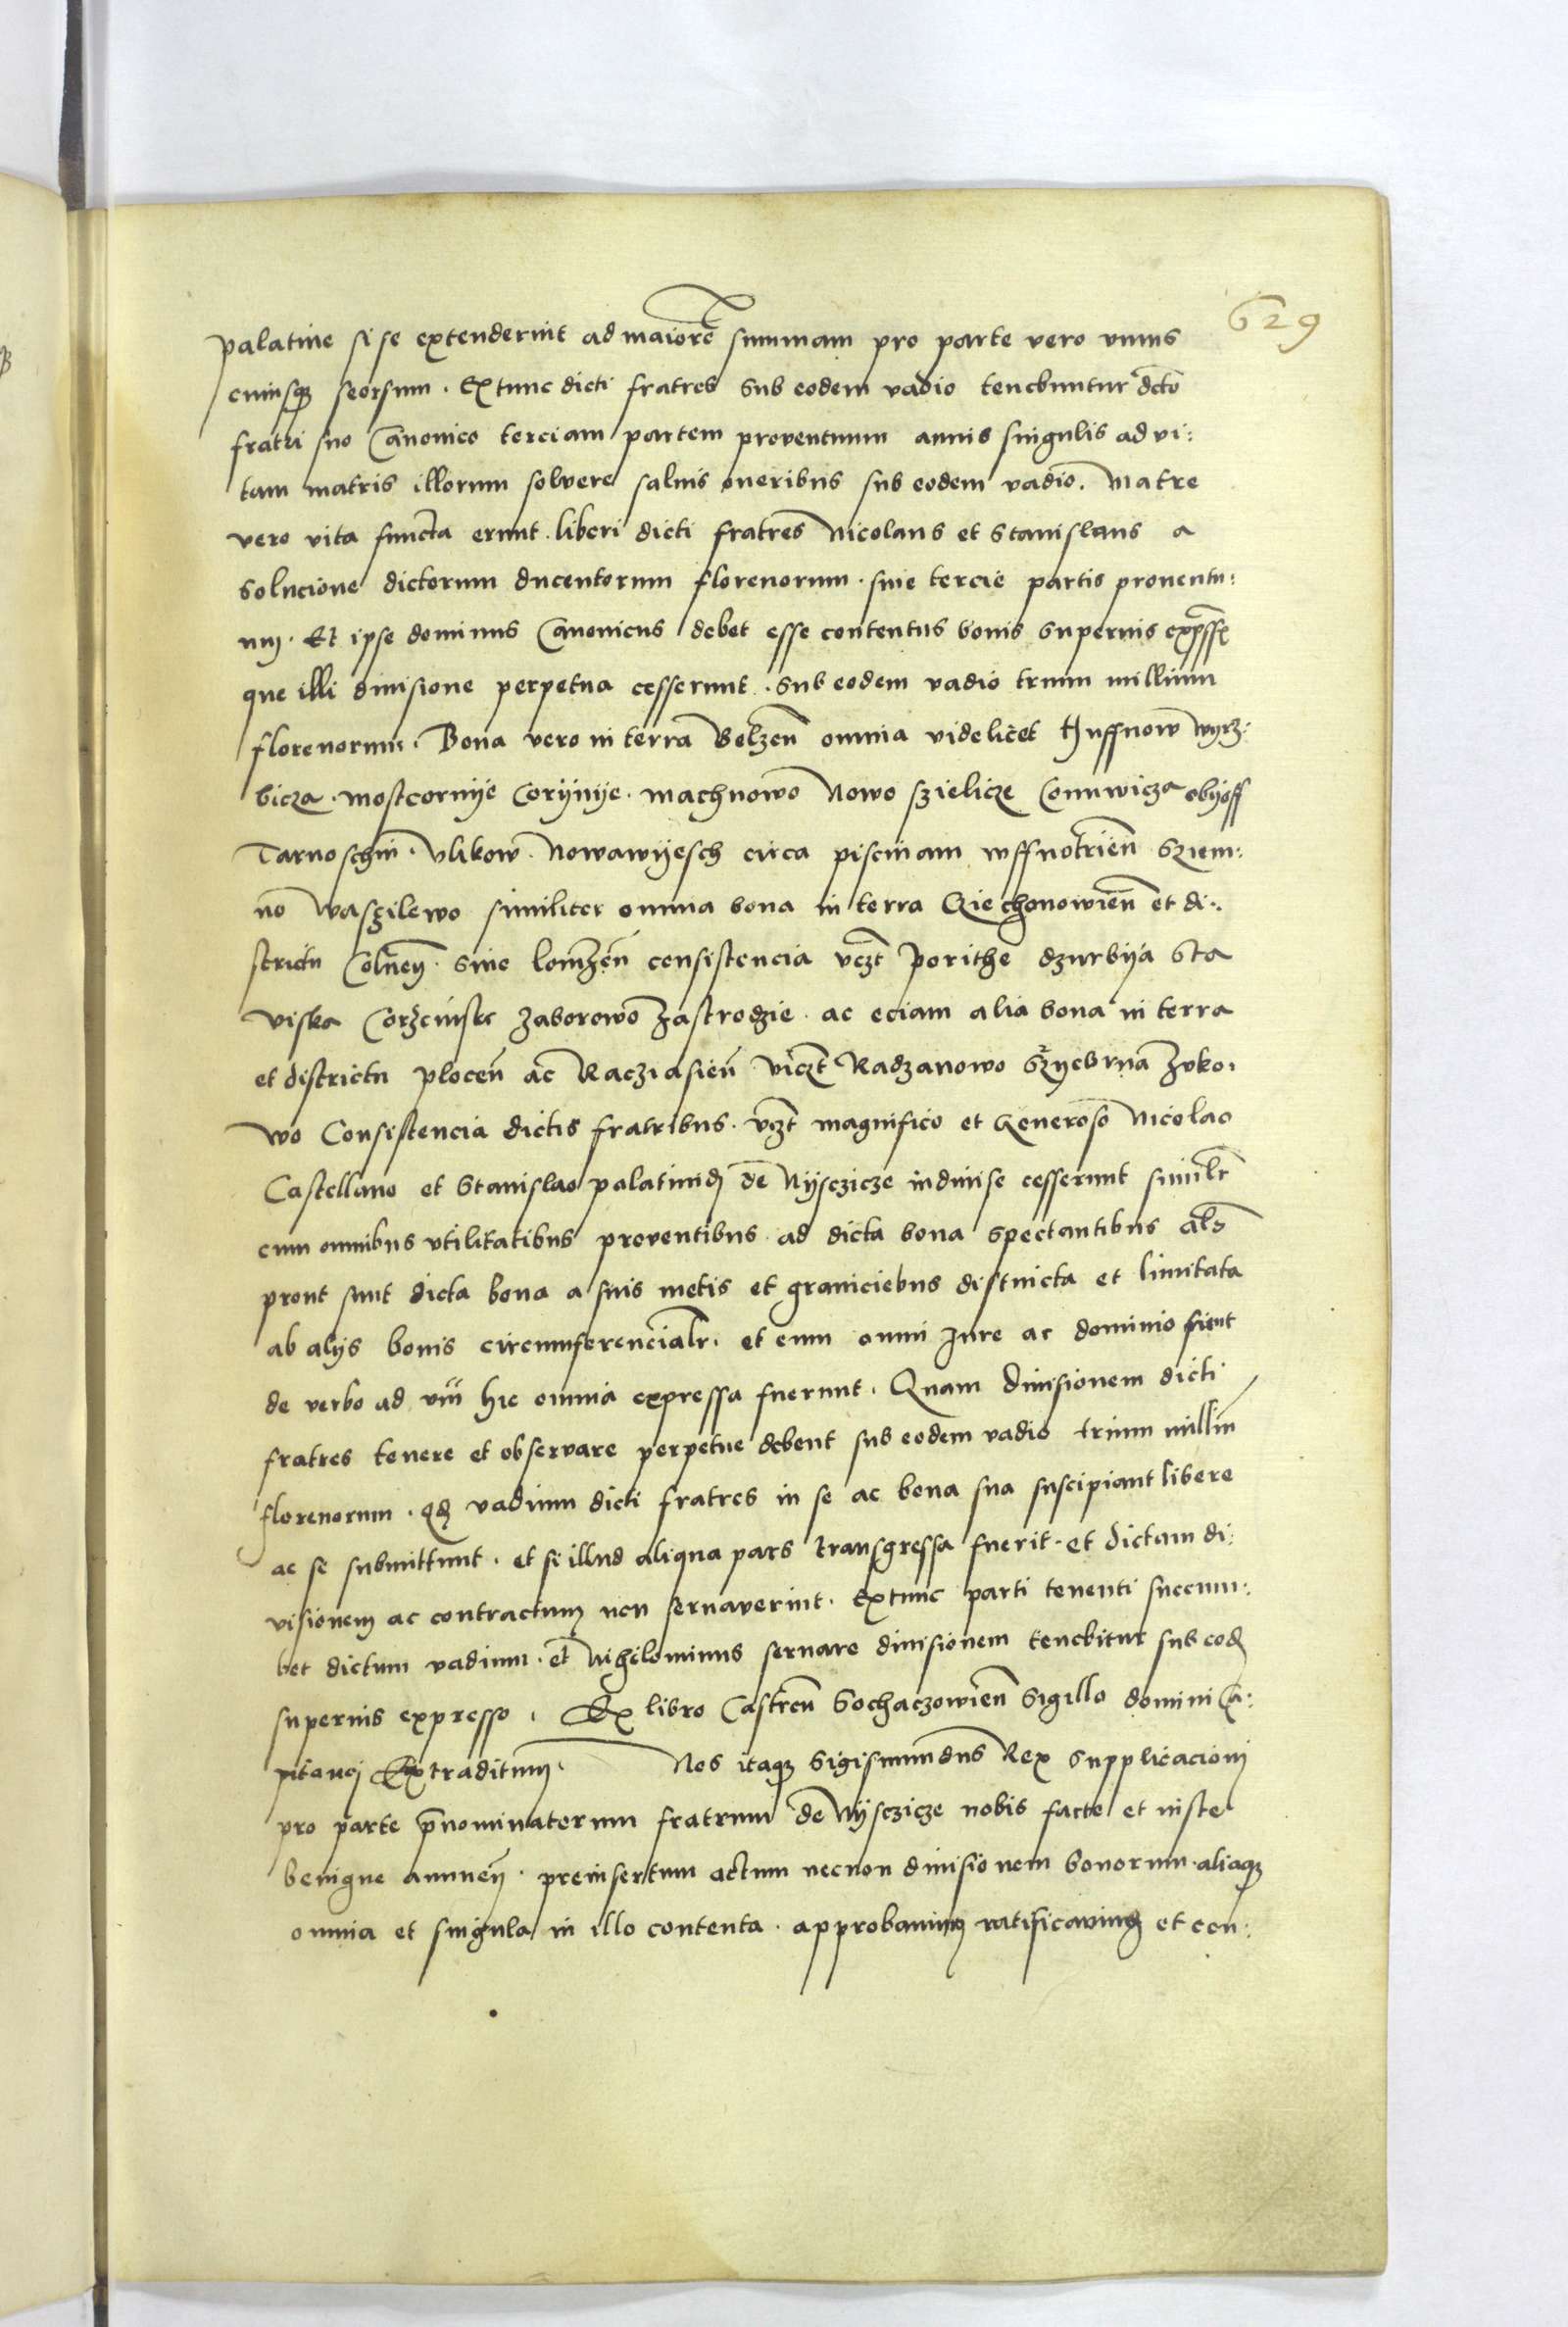 629
palatine si se extenderint ad maiore͞ summam pro parte vero unius
cuiusqꝫ seorsum. Extunc dicti fratres sub eodem vadio tenebuntur dcto͞
fratri suo Canonico terciam partem proventuum annis singulis ad vi:
tam matris illorum solvere salvis oneribus sub eodem vadio. Matre
vero vita functa erunt liberi dicti fratres Nicolaus et Stanislaus a
solucione dictorum ducentorum florenorum. sive tercie partis proventu:
um. Et ipse dominus Canonicus debet esse contentus bonis superius
que illi divisione perpetua cesserunt. sub eodem vadio trium millium
florenorum. Bona vero in terra Belzen͞ omnia videlicet Huffnow wyrz:
bicza. mostcornije Corijnije. machnowo Nowo szielicze Connwicza obijoff
Tarnoschin. Ulikow. Nowawijesch circa piscinam wffnotrien͞ Sziem:
no Waszilewo similiter omnia bona in terra Cziechonowien͞ et di:
strictu Colnen͞. sive lomzen͞ consistencia vczt͞ Porithe dzurbija Sta
viska Corzeniste Zaborowo Zastrodzie. ac eciam alia bona in terra
et districtu plocen͞ ac Racziasien͞ viczt͞ Radzanowo Srzyebrna Zuko:
wo Consistencia dictis fratribus. vczt͞ magnifico et Generoso Nicolao
Castellano et Stanislao palatinid͞ de Nijsczicze indivise cesserunt similr͞
cum omnibus utilitatibus proventibus ad dicta bona spectantibus als͞
prout sunt dicta bona a suis metis et graniciebus distincta et limitata
ab alijs bonis circumferencialr͞. et cum omni Jure ac dominio sicut
de verbo ad vm͞ hic omnia expressa fuerunt. Quam divisionem dicti
fratres tenere et observare perpetue debent sub eodem vadio trium millium͞
florenorum. qd͞ vadium dicti fratres in se ac bona sua suscipiant libere
ac se submittunt. et si illud aliqua pars transgressa fuerit. et dictam di:
visionem ac contractum non servaverint. Extunc parti tenenti succum:
bet dictum vadium. et Nihilominus servare divisionem tenebitur sub eod͞
superius expresso. Ex libro Castren͞ Sochaczowien͞ Sigillo domini Ca:
pitanej Extraditum. Nos itaqꝫ Sigismundus Rex Supplicacioni
pro parte p͞nominatorum fratrum de Nijsczicze nobis facte et iniste
benigne annuen͞. preinsertum actum necnon divisionem bonorum. aliaqꝫ
omnia et singula in illo contenta. approbavimus ratificavimus et con: